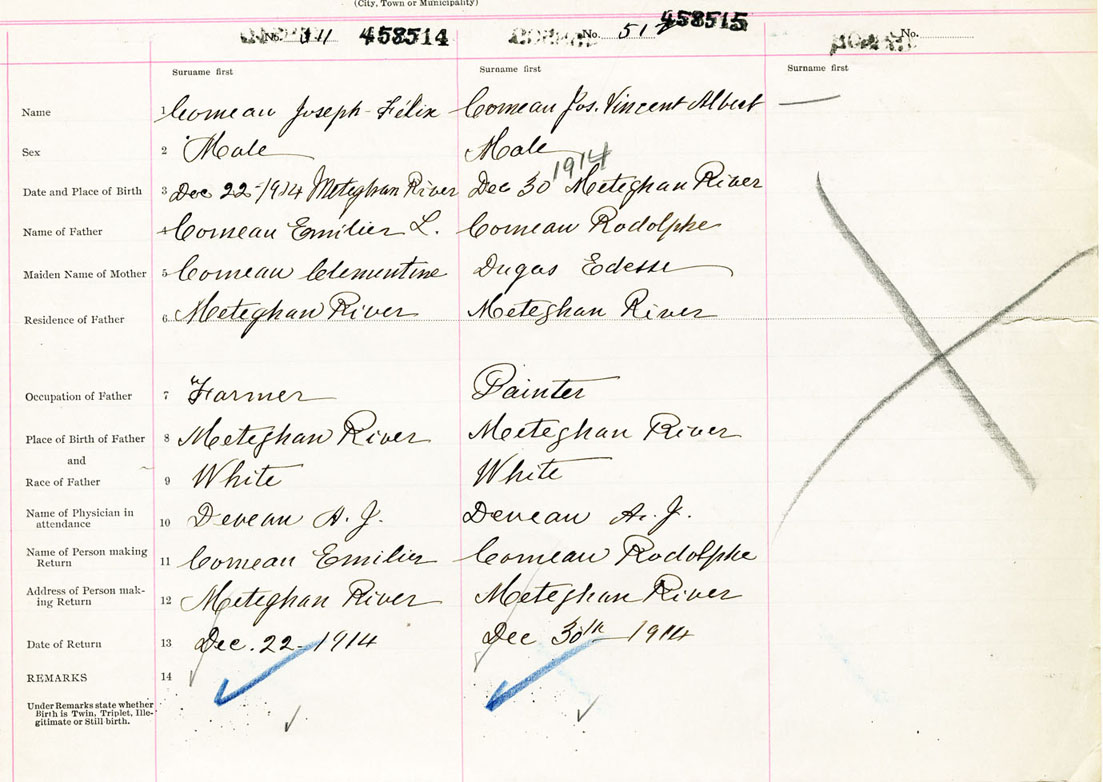 (City, Town or Municipality)
No. 458514 No. 51 458515 No.
Surname first Surname first Surname first
Name 1 Comeau Joseph-Félix Comeau Jos. Vincent Albert —
Sex 2 Male Male
1914
Date and Place of Birth 3 Dec 22-1914 Meteghan River Dec 30 Meteghan River
Name of Father 4 Comeau Emilier L. Comeau Rodolphe
Maiden Name of Mother 5 Comeau Clementine Dugas Edesse
Residence of Father 6 Meteghan River Meteghan River
Occupation of Father 7 Farmer Painter
Place of Birth of Father 8 Meteghan River Meteghan River
and
Race of Father 9 White White
Name of Physician in
attendance 10 Deveau A. J. Deveau A. J.
Name of Person making
Return 11 Comeau Emilier Comeau Rodolphe
Address of Person mak-
ing Return 12 Meteghan River Meteghan River
Date of Return 13 Dec. 22-1914 Dec 30th 1914
REMARKS 14
Under Remarks state whether
Birth is Twin, Triplet, Ille-
gitimate or Still birth.